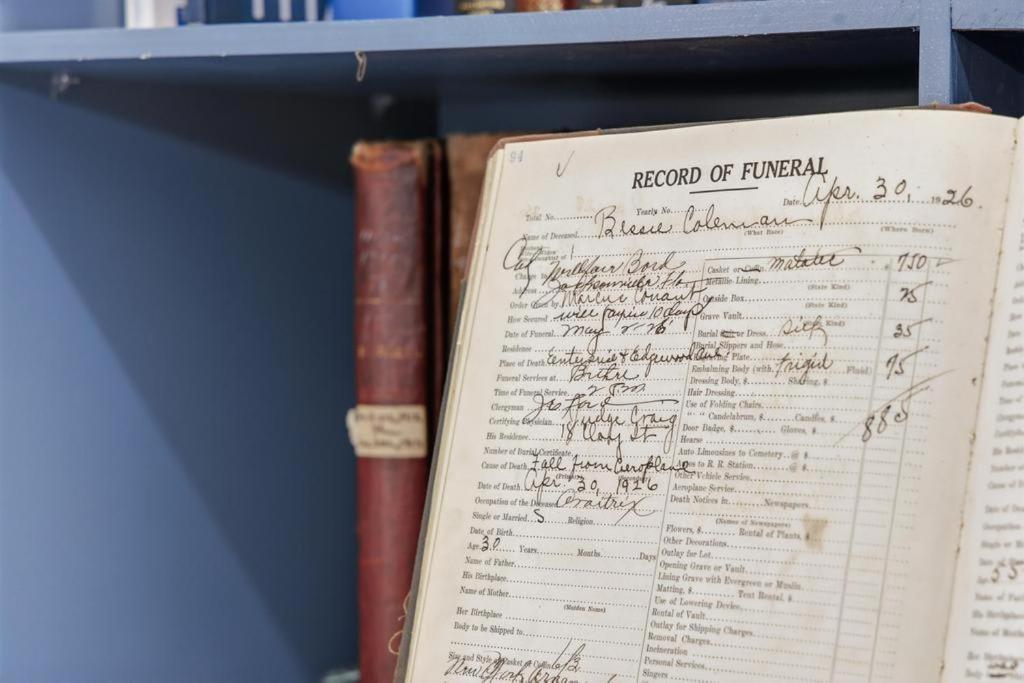 94
RECORD OF FUNERAL
Total No. Yearly No. Date Apr. 30, 1926.
Name of Deceased Bessie Coleman
(What Race) (Where Born)
Charge to
Address Jacksonville Fla
Order Given by
How Secured will pay in 10 days
Date of Funeral May 2-26
Residence
Place of Death Enterprise & Edgewood Ave
Funeral Services at
Time of Funeral Service 2 PM
Clergyman
Certifying Physician Judge Craig
His Residence 18 Clay St
Number of Burial Certificate
Cause of Death Fall from Aeroplane
Date of Death Apr. 30, 1926
Occupation of the Deceased Aviatrix
Single or Married S Religion
Date of Birth
Age 30 Years Months Days
Name of Father
His Birthplace
Name of Mother
(Maiden Name)
Her Birthplace
Body to be Shipped to
Size and Style of Casket or Coffin 6/3
Casket or Coffin $ 750
Metallic Lining
(State Kind)
Outside Box 25
(State Kind)
Grave Vault
(State Kind)
Burial Suit or Dress 35
Burial Slippers and Hose
Engraving Plate
Embalming Body (with Frigid Fluid) 75
Dressing Body, $ Shaving, $
Hair Dressing
Use of Folding Chairs
" " Candelabrum, $ Candles, $
Door Badge, $ Gloves, $
885
Hearse
Auto Limousines to Cemetery @ $
Autos to R. R. Station @ $
Other Vehicle Service
Aeroplane Service
Death Notices in Newspapers
(Names of Newspapers)
Flowers, $ Rental of Plants, $
Other Decorations
Outlay for Lot
Opening Grave or Vault
Lining Grave with Evergreen or Muslin
Matting, $ Tent Rental, $
Use of Lowering Device
Rental of Vault
Outlay for Shipping Charges
Removal Charges
Incineration
Personal Services
Singers